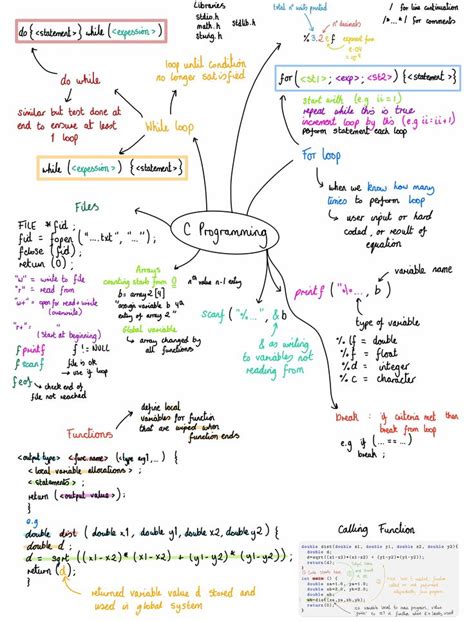 Libraries
stdio.h
math.h
string.h
stdlib.h
total nº units printed
nº decimals
% 3.2 e f
/ for line continuation
/*...*/ for comments
do {<statement>} while (<expression>)
do while
similar but test done at
end to ensure at least
1 loop
loop until condition
no longer satisfied
While loop
while (<expression>) {<statement>}
for (<st1>; <exp>; <st2>) {<statement>}
start with (e.g ii=1)
repeat while this is true
increment loop by this (e.g ii=ii+1)
perform statement each loop
For loop
when we know how many
times to perform loop
user input or hard
coded, or result of
equation
C Programming
Files
FILE *fid ;
fid = fopen ("....txt", "...");
fclose (fid) ;
return (0) ;
"w" = write to file
"r" = read from
w+ = open for read + write
(overwrite)
r+ = "
(start at beginning)
fprintf
fscanf
f != NULL
file is ok
→ use if loop
feof
check end of
file not reached
Arrays
counting starts from 0
nth value n-1 entry
b = array2 [4]
"assign variable b 4th
entry of array 2"
Global variable
array changed by
all functions
scanf ("%...", &b
& as writing
to variables not
reading from
printf ("%...", b)
variable name
type of variable
% lf = double
% f = float
% d = integer
% c = character
break : if criteria met then
break from loop
e.g if (... == ...)
break ;
Functions
define local
variables for function
that are wiped when
function ends
<output type> <func name> (<type arg1,...) {
<local variable allocations> ;
<statements> ;
return (<output value>) ;
}
e.g
double dist (double x1, double y1, double x2, double y2) {
double d ;
d = sqrt ((x1-x2)*(x1-x2) + (y1-y2)*(y1-y2));
return (d) ;
}
returned variable d stored and
used is global system
Calling Function
double dist(double x1, double y1, double x2, double y2){
double d;
d=sqrt((x1-x2)*(x1-x2) + (y1-y2)*(y1-y2));
return(d);
}
int main () {
return(0);
}